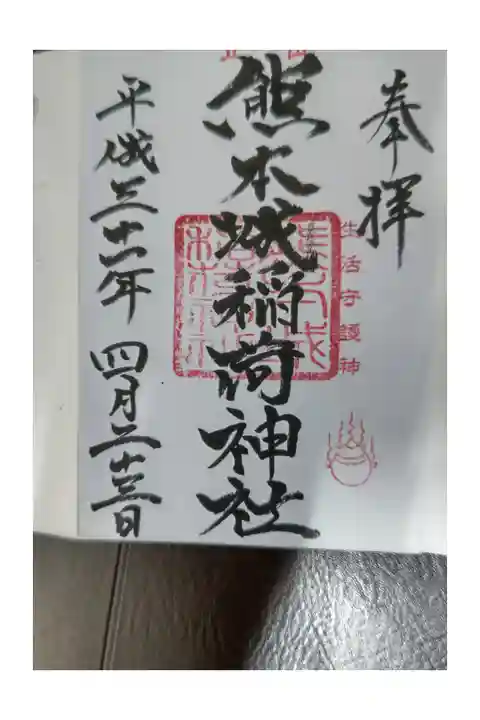 奉拝
生活守護神
熊本城稲荷神社
平成三十一年四月二十三日